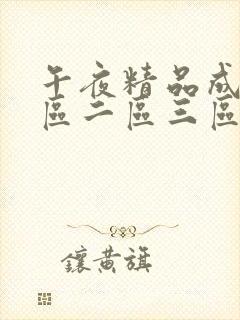 午夜精品成
區二區三區
鑲黃旗